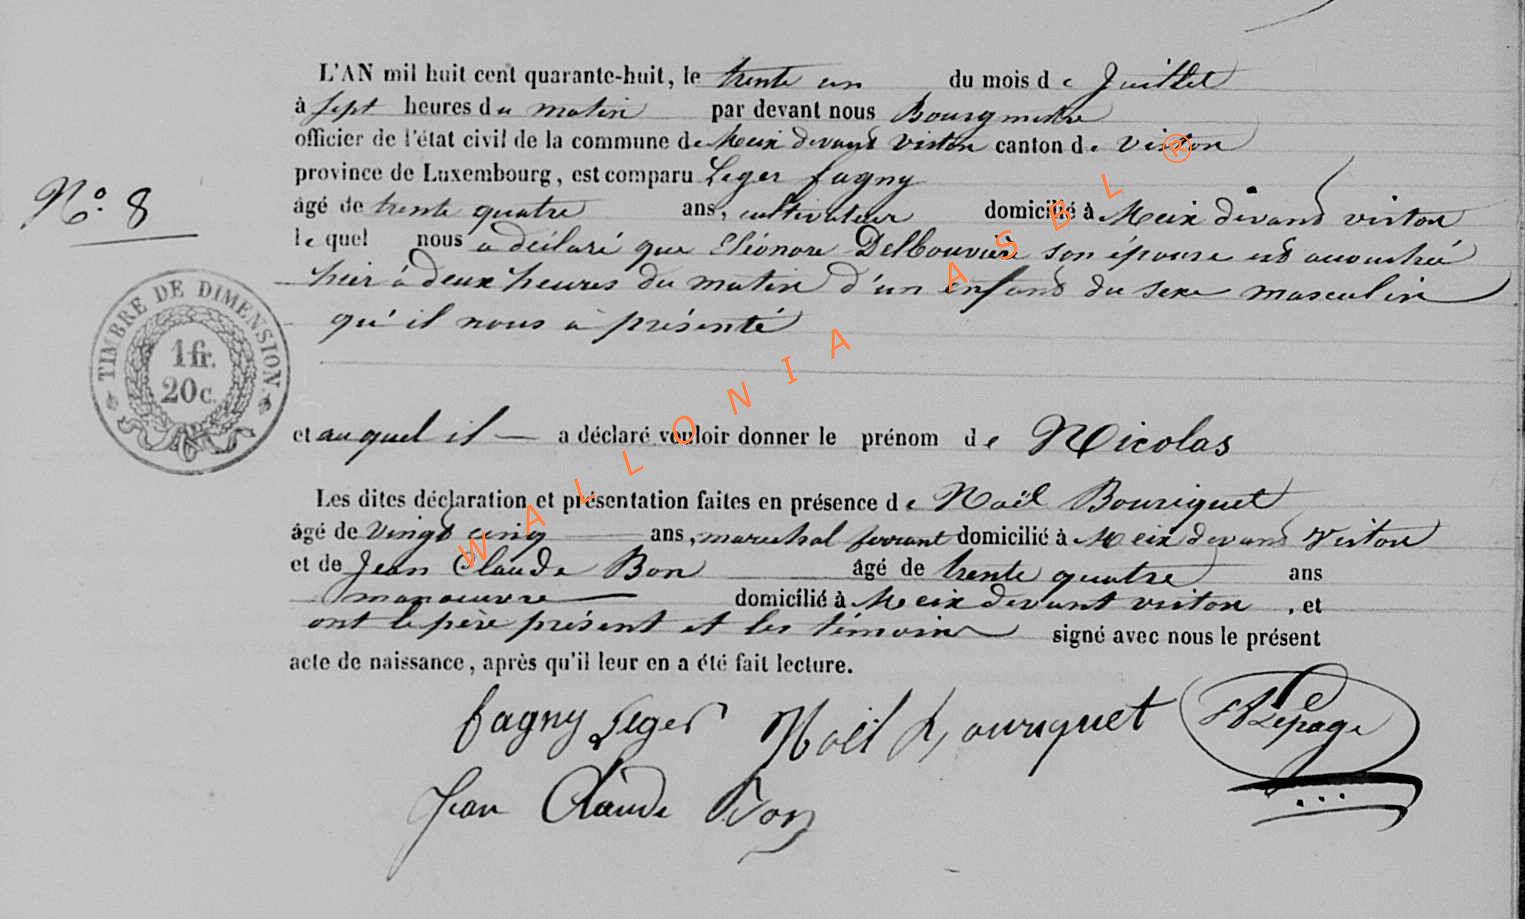 L'AN mil huit cent quarante-huit, le trente un du mois de Juillet
à sept heures du matin par devant nous Bourgmestre
officier de l'état civil de la commune de Meix devant virton canton de virton
province de Luxembourg, est comparu Leger fagny
âgé de trente quatre ans, cultivateur domicilié à Meix devant virton
lequel nous a déclaré que Eléonore Delbouvrie son épouse est accouchée
hier à deux heures du matin d'un enfant du sexe masculin
qu'il nous à présenté
N.° 8
TIMBRE DE DIMENSION.
1 fr.
20 c.
et auquel il — a déclaré vouloir donner le prénom de Nicolas
Les dites déclaration et présentation faites en présence de Noël Bouriquet
âgé de vingt cinq ans, marechal ferrant domicilié à Meix devant Virton
et de Jean Claude Bon âgé de trente quatre ans
manoeuvre domicilié à Meix devant virton, et
ont le père présent et les témoins signé avec nous le présent
acte de naissance, après qu'il leur en a été fait lecture.
fagny Leger Noël Bouriquet Lepage
Jean Claude Bon
WALLONIA ASBL ®